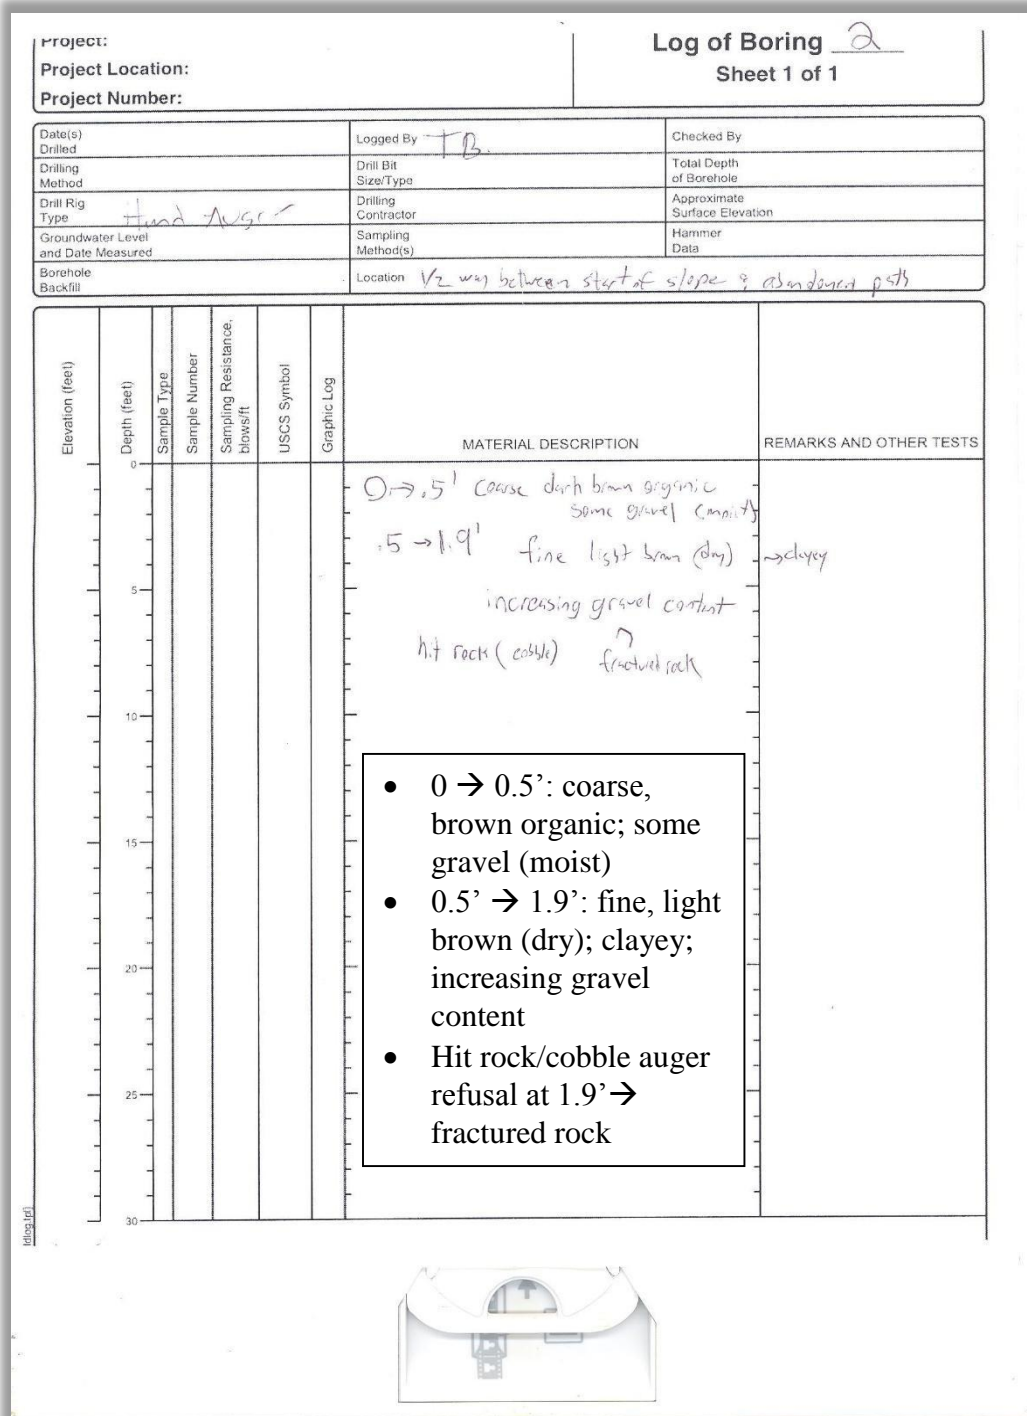 Project:
Project Location:
Project Number:
Log of Boring 2
Sheet 1 of 1
Date(s)
Drilled
Logged By TB.
Checked By
Drilling
Method
Drill Bit
Size/Type
Total Depth
of Borehole
Drill Rig
Type Hand Auger
Drilling
Contractor
Approximate
Surface Elevation
Groundwater Level
and Date Measured
Sampling
Method(s)
Hammer
Data
Borehole
Backfill
Location 1/2 way between start of slope & abandoned path
Elevation (feet)
Depth (feet)
Sample Type
Sample Number
Sampling Resistance,
blows/ft
USCS Symbol
Graphic Log
MATERIAL DESCRIPTION
REMARKS AND OTHER TESTS
0
5
10
15
20
25
30
0 → .5' coarse dark brown organic
some gravel (moist)
.5 → 1.9' fine light brown (dry) → clayey
increasing gravel content
hit rock (cobble) fractured rock
• 0 → 0.5’: coarse,
brown organic; some
gravel (moist)
• 0.5’ → 1.9’: fine, light
brown (dry); clayey;
increasing gravel
content
• Hit rock/cobble auger
refusal at 1.9’→
fractured rock